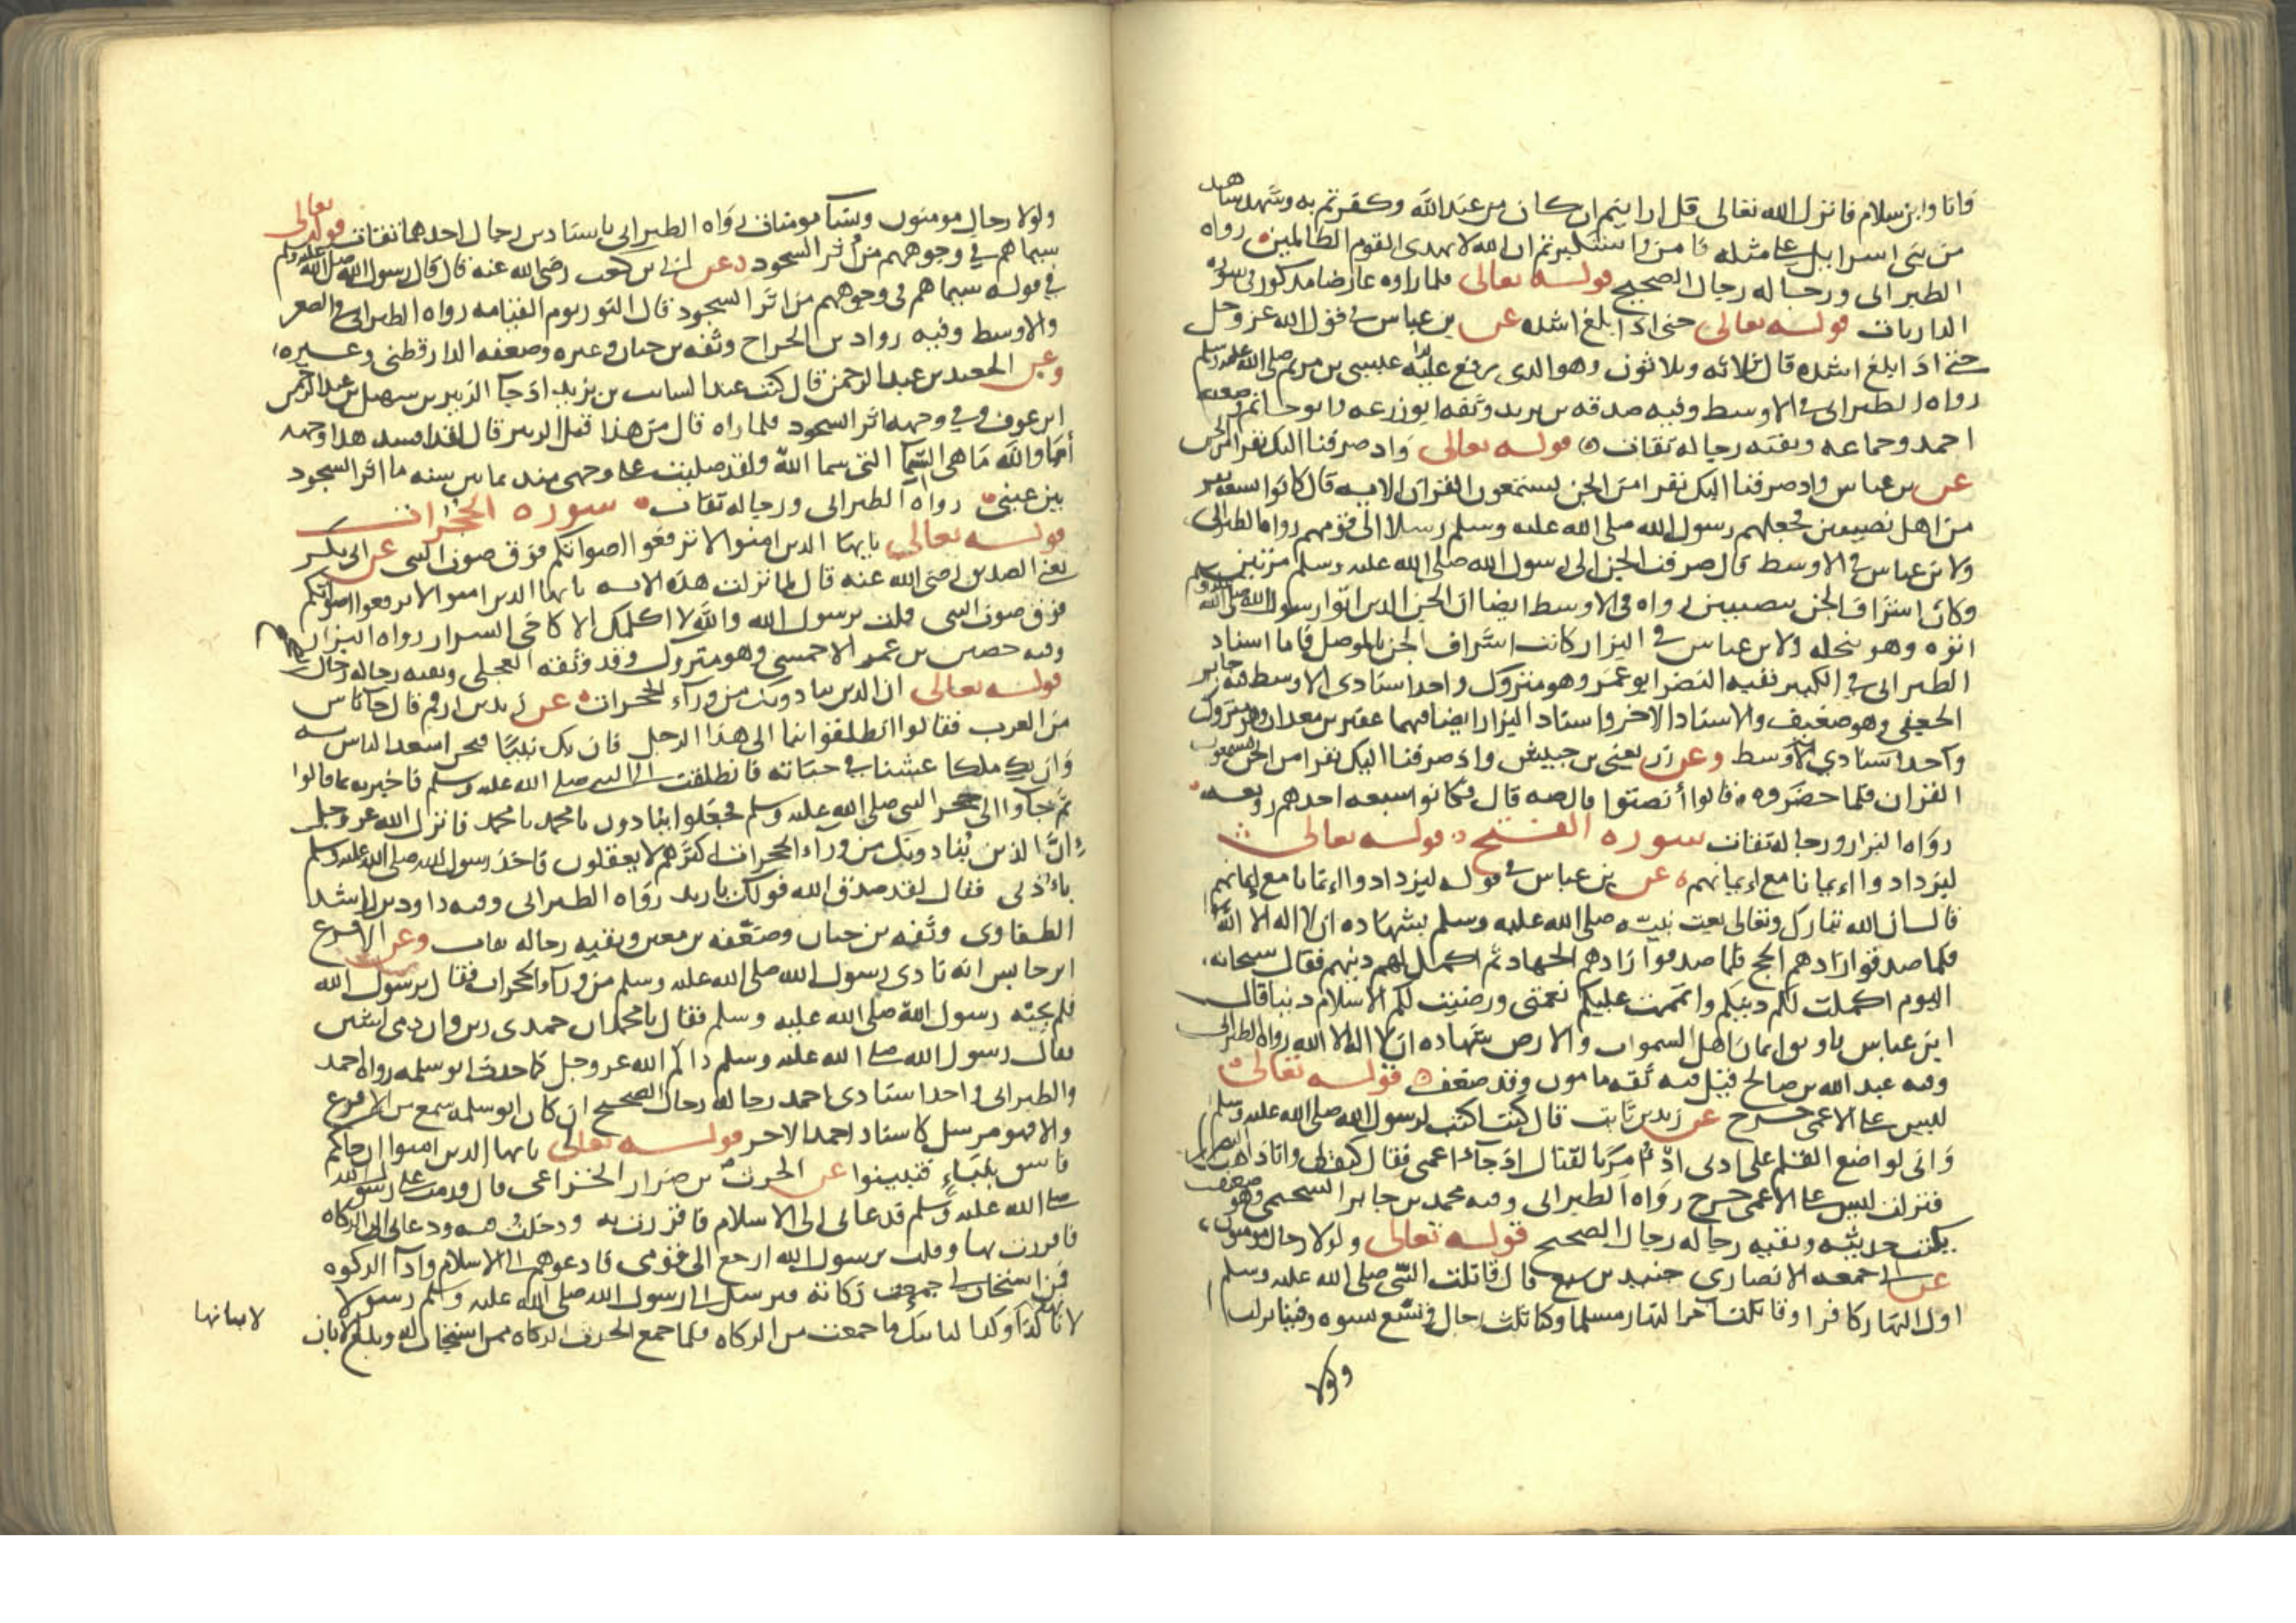 وانا وابن سلام فانزل الله تعالى قل ارايتم ان كان من عند الله وكفرتم به وشهد شاهد
من بني اسراييل على مثله فامن واستكبرتم ان الله لا يهدى القوم الظالمين رواه
الطبرانى ورجاله رجال الصحيح قوله تعالى فلما راوه عارضا مذكور فى سورة
الداريات قوله تعالى حتى اذا بلغ اشده عن بن عباس فى قول الله عز وجل
حتى اذا بلغ اشده قال ثلاثه وثلاثون وهو الذى رفع عليه عيسى بن مريم صلى الله عليه وسلم
رواه الطبرانى فى الاوسط وفيه صدقه بن يزيد وثقه ابو زرعه وابو حاتم وضعفه
احمد وجماعه وبقيه رجاله ثقات قوله تعالى واذ صرفنا اليك نفرا من الجن
عن بن عباس واذ صرفنا اليك نفرا من الجن يستمعون القران الايه قال كانوا تسعه نفر
من اهل نصيبين فجعلهم رسول الله صلى الله عليه وسلم رسلا الى قومهم رواه الطبرانى
ولابن عباس فى الاوسط قال صرفت الجن الى رسول الله صلى الله عليه وسلم مرتين
وكان اشراف الجن بنصيبين رواه فى الاوسط ايضا ان الجن الذين اتوا رسول الله صلى الله عليه وسلم
اتوه وهو بنخله ولابن عباس فى البزار كانت اشراف الجن بالموصل فاما اسناد
الطبرانى فى الكبير ففيه النضر ابو عمر وهو متروك واحد اسنادى الاوسط فيه جابر
الجعفى وهو ضعيف والاسناد الاخر واسناد البزار ايضا فيهما عفير بن معدان وهو متروك
واحد اسنادي الاوسط وعن زر يعنى بن حبيش واذ صرفنا اليك نفرا من الجن يستمعون
القران فلما حضروه قالوا أنصتوا قال صه قال فكانوا سبعه احدهم زوبعه
رواه البزار ورجاله ثقات سوره الفتح قوله تعالى
ليزدادوا ايمانا مع ايمانهم عن بن عباس فى قوله ليزدادوا ايمانا مع ايمانهم
قال ان الله تبارك وتعالى بعث نبيه صلى الله عليه وسلم بشهاده ان لا اله الا الله
فلما صدقوا زادهم الحج فلما صدقوا زادهم الجهاد ثم اكمل لهم دينهم فقال سبحانه
اليوم اكملت لكم دينكم واتممت عليكم نعمتى ورضيت لكم الاسلام دينا قال
ابن عباس فاوثق ايمان اهل السموات والارض شهاده ان لا اله الا الله رواه الطبرانى
وفيه عبد الله بن صالح قيل فيه ثقه مامون وقد ضعف قوله تعالى
ليس على الاعمى حرج عن زيد بن ثابت قال كنت اكتب لرسول الله صلى الله عليه وسلم
وانى لواضع القلم على اذنى اذ امر بالقتال اذ جاءه اعمى فقال كيف لى وانا ذاهب البصر
فنزلت ليس على الاعمى حرج رواه الطبرانى وفيه محمد بن جابر السحيمى وهو ضعيف
يكتب حديثه وبقيه رجاله رجال الصحيح قوله تعالى ولولا رجال مومنون
عن ابى جمعه الانصارى جنيد بن سبع قال قاتلت النبى صلى الله عليه وسلم
اول النهار كافرا وقاتلت معه اخر النهار مسلما وكنا ثلاث رجال وتسع نسوه وفينا نزلت
ولولا
ولولا رجال مومنون ونسآ مومنات رواه الطبرانى باسنادين رجال احدهما ثقات قوله تعالى
سيماهم فى وجوههم من اثر السجود عن ابى بن كعب رضى الله عنه قال قال رسول الله صلى الله عليه وسلم
فى قوله سيماهم فى وجوههم من اثر السجود قال النور يوم القيامه رواه الطبرانى فى الصغير
والاوسط وفيه رواد بن الجراح وثقه بن حبان وغيره وضعفه الدارقطنى وغيره
وعن الجعيد بن عبد الرحمن قال كنت عند السايب بن يزيد اذ جآ الزبير بن سهيل بن عبد الرحمن
ابن عوف وفى وجهه اثر السجود فلما راه قال من هذا قيل الزبير قال لقد افسد هذا وجهه
أما والله ما هى السيما التى سما الله ولقد صليت على وجهى منذ ثمانين سنه ما اثر السجود
بين عينى رواه الطبرانى ورجاله ثقات سوره الحجرات
قوله تعالى يايها الذين امنوا لا ترفعوا اصواتكم فوق صوت النبى عن ابى بكر
يعنى الصديق رضى الله عنه قال لما نزلت هذه الايه يايها الذين امنوا لا ترفعوا اصواتكم
فوق صوت النبى قلت يرسول الله والله لا اكلمك الا كاخى السرار رواه البزار
وفيه حصين بن عمر الاحمسى وهو متروك وقد وثقه العجلى وبقيه رجاله رجال
قوله تعالى ان الذين ينادونك من ورآء الحجرات عن زيد بن ارقم قال جا ناس
من العرب فقالوا انطلقوا بنا الى هذا الرجل فان يك نبيا فنحن اسعد الناس به
وان يك ملكا عشنا فى جنابه فانطلقت الى النبى صلى الله عليه وسلم فاخبرته بما قالوا
ثم جاوا الى حجر النبى صلى الله عليه وسلم فجعلوا ينادون يا محمد يا محمد فانزل الله عز وجل
ان الذين ينادونك من وراء الحجرات اكثرهم لا يعقلون فاخذ رسول الله صلى الله عليه وسلم
باذنى فقال لقد صدق الله قولك يا زيد رواه الطبرانى وفيه داود بن راشد
الطفاوى وثقه بن حبان وضعفه بن معين وبقيه رجاله ثقات وعن الاقرع
ابن حابس انه نادى رسول الله صلى الله عليه وسلم من ورآء الحجرات فقال يرسول الله
فلم يجبه رسول الله صلى الله عليه وسلم فقال يا محمد ان حمدى زين وان ذمى شين
فقال رسول الله صلى الله عليه وسلم ذاكم الله عز وجل كما حدث ابو سلمه رواه احمد
والطبرانى واحد اسنادى احمد رجاله رجال الصحيح ان كان ابو سلمه سمع من الاقرع
والا فهو مرسل كاسناد احمد الاخر قوله تعالى يايها الذين امنوا ان جاكم
فاسق بنباء فتبينوا عن الحرث بن ضرار الخزاعى قال قدمت على رسول الله
صلى الله عليه وسلم فدعانى الى الاسلام فاقررت به ودخلت فيه ودعانى الى الزكاه
فاقررت بها وقلت يرسول الله ارجع الى قومى فادعوهم الى الاسلام وادآ الزكوه
فمن استجاب لى جمعت زكاته فيرسل الى رسول الله صلى الله عليه وسلم رسولا
لابان كذا وكذا لياتيك ما جمعت من الزكاه فلما جمع الحرث الزكاه ممن استجاب له وبلغ الابان